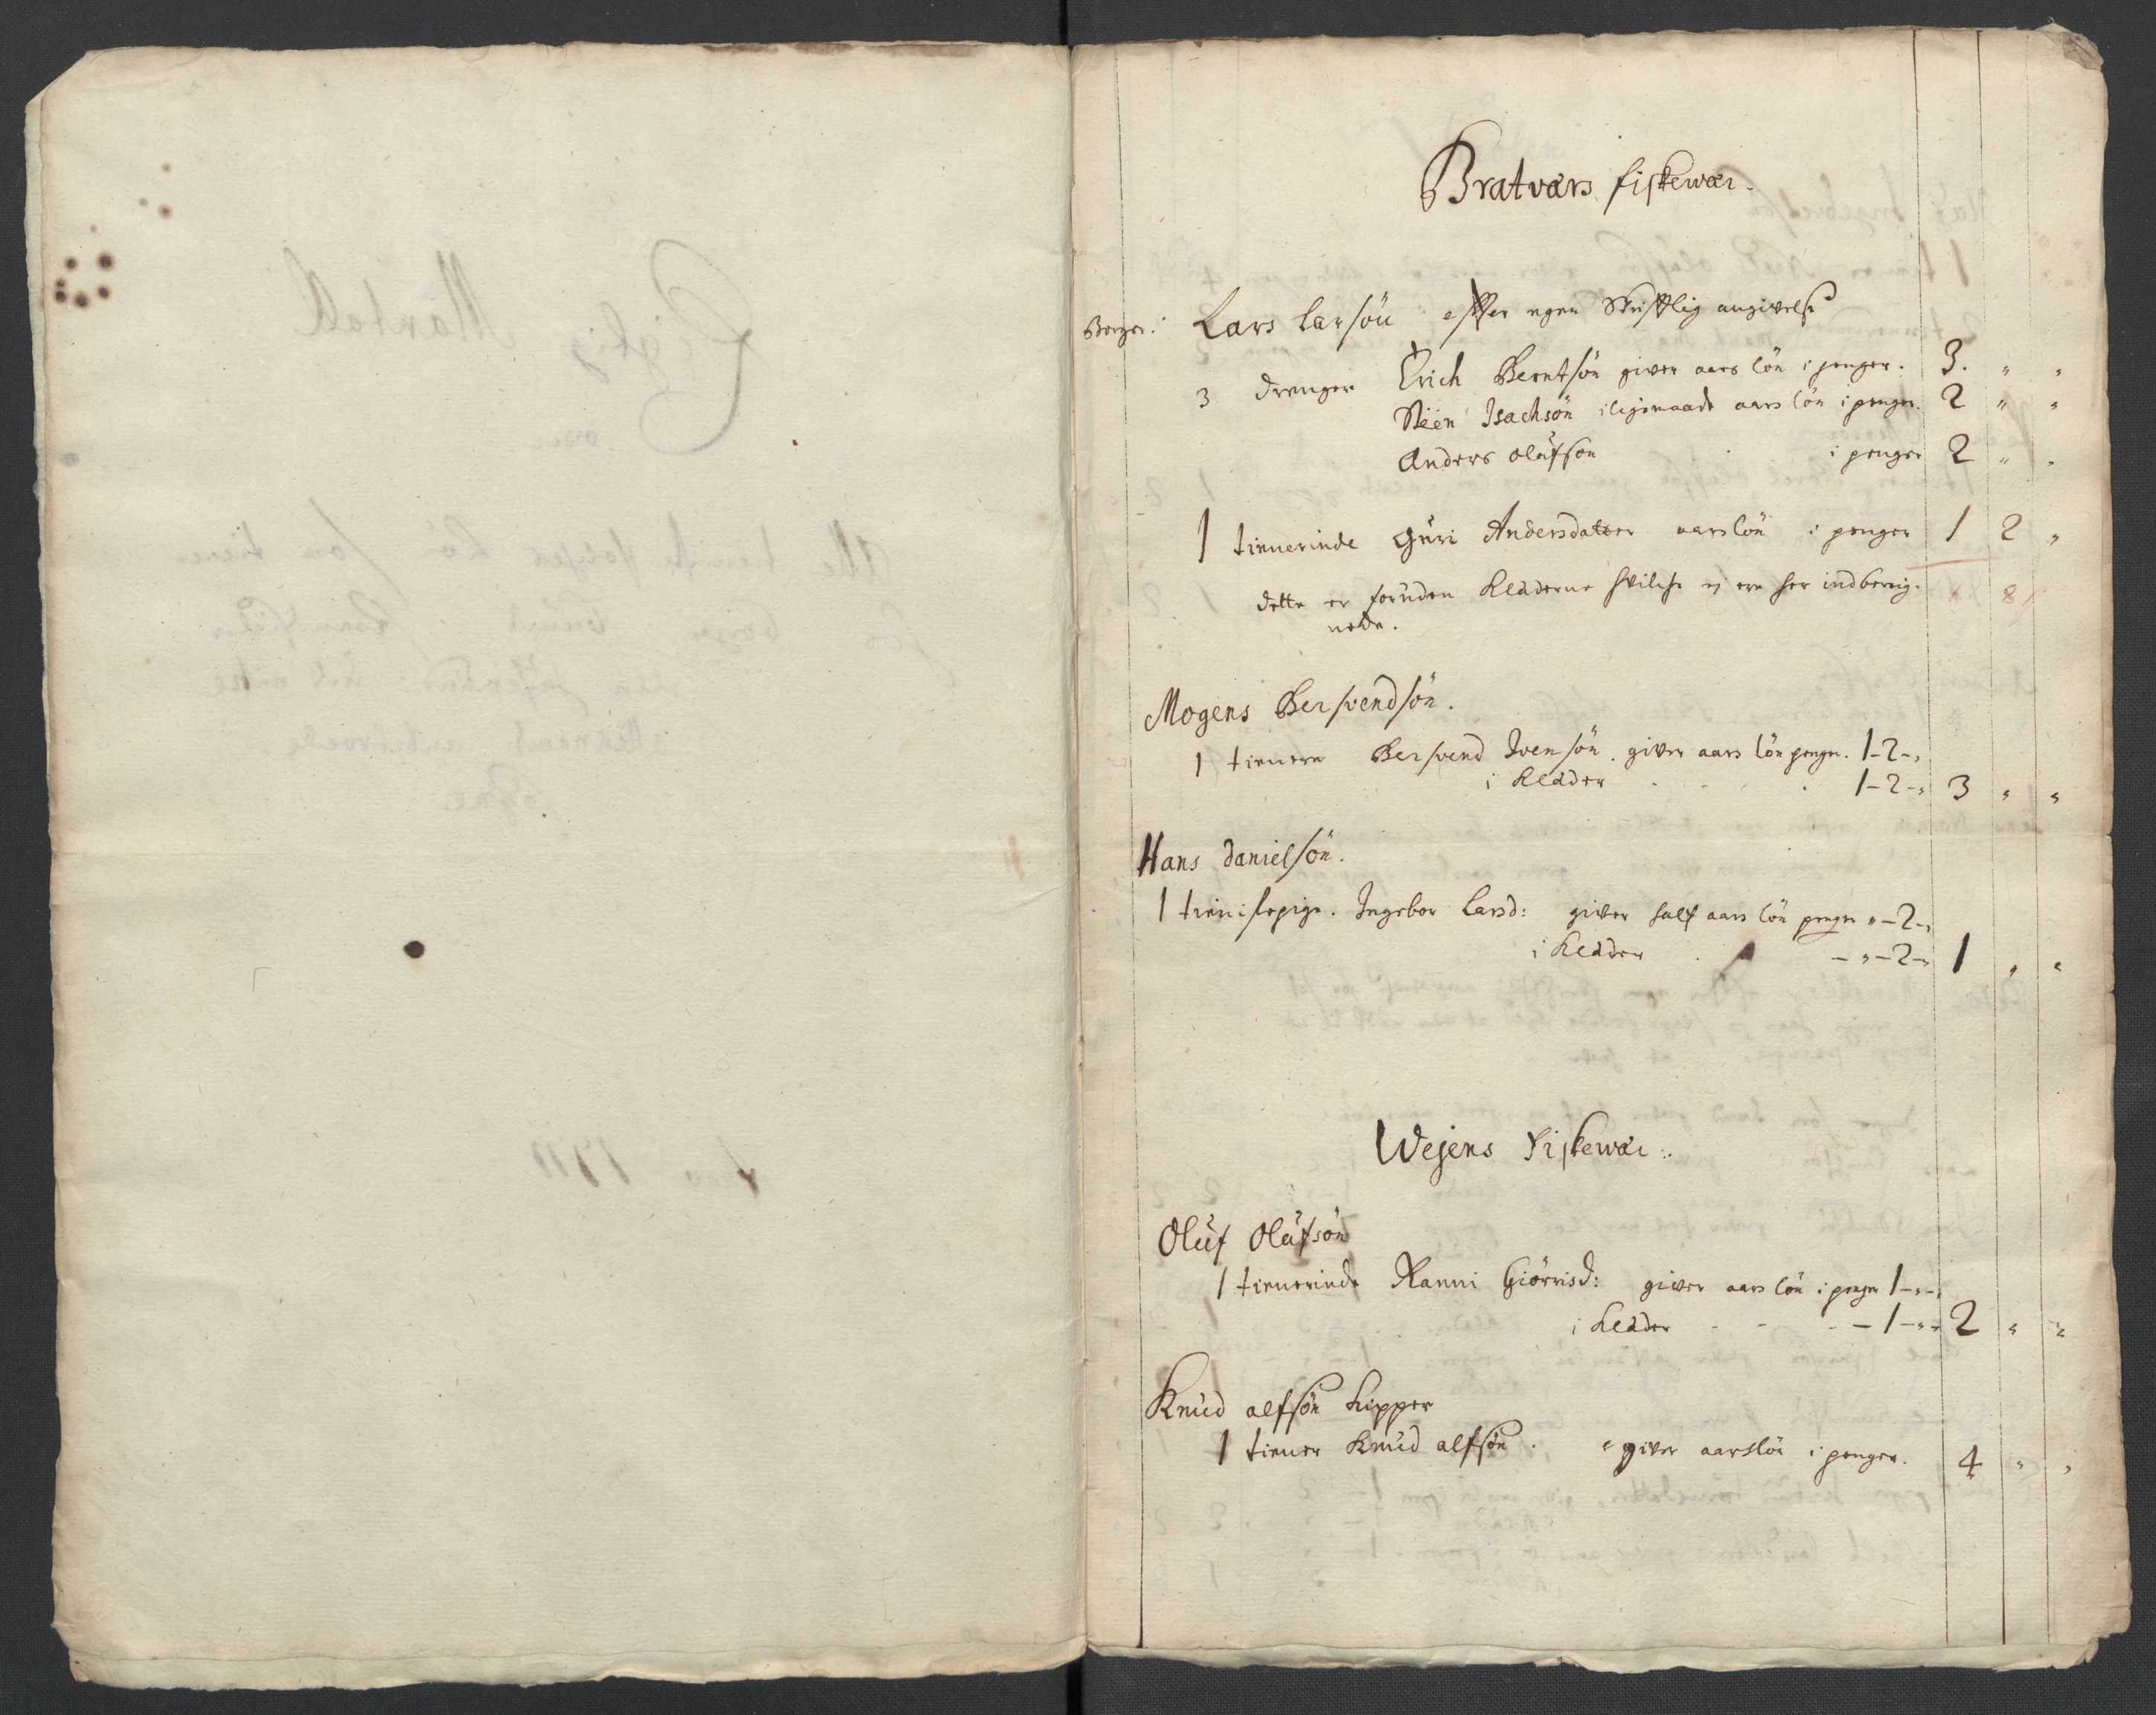 Bratværs fiskewær.
Borger: Lars Larsön efter egen Skriftlig angivelse
3 drenger Erich Berntsön giver aars lön i penger. 3. " "
Steen Isachsön iligemaade aars lön i penger. 2 " "
Anders olüfson i penger 2 " "
1 tienerinde Guri Andersdatter aarslön i penger 1 2 "
dette er foruden Kläderne hvilche ej ere her indbereig-
nede.
Mogens Bersvendsön.
1 tienere Bersvend Ivensön. giver aars lön penger. 1-2-"
i Kläder 1-2-" 3 " "
Hans Danielsön.
1 tienistepige. Ingebor Larsd: giver half aars lön penger "-2-"
i Kläder - "-2-" 1 " "
Wejens Fiskewær:
Olüf Olüfsön
1 tienerinde Ranni Giörrisd: giver aars lön i penger 1-"-"
i Kläder - 1-"-" 2 " "
Knüd alfsön Lipper
1 tiener Knüd alfsön. giver aarslön i penger. 4 " "